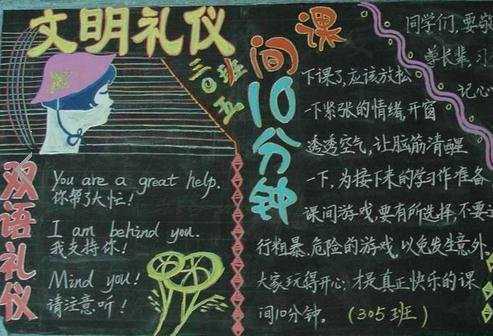 文明礼仪
三0五班
双语礼仪
You are a great help.
你帮了大忙!
I am behind you.
我支持你!
Mind you!
请注意听!
课间10分钟
下课了,应该放松
一下紧张的情绪,开窗
透透空气,让脑筋清醒
一下,为接下来的学习作准备
课间游戏,要有所选择,不要
行粗暴、危险的游戏,以免发生意外
大家玩得开心,才是真正快乐的课
间10分钟。(305班)
同学们,要
学长辈,
记心